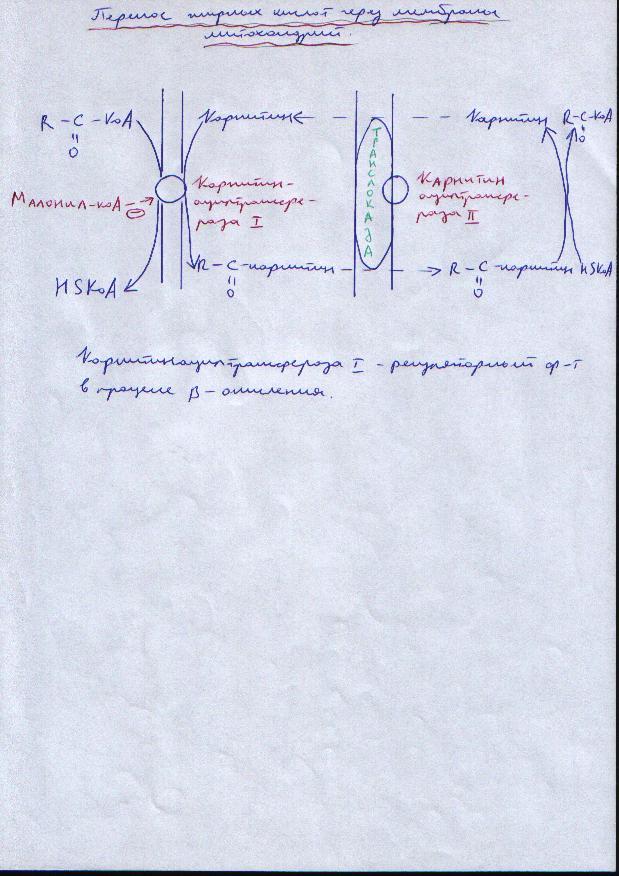 Перенос жирных кислот через мембраны
митохондрий.
R – C – KoA
O
Карнитин
Карнитин
R – C – KoA
O
Малонил-КоА
Карнитин-
ацилтрансфе-
раза I
ТРАНСЛОКАЗА
Карнитин
ацилтрансфе-
раза II
HSKoA
R – C – карнитин
O
R – C – карнитин
O
HSKoA
Карнитинацилтрансфераза I – регуляторный ф-т
в процессе β – окисления.